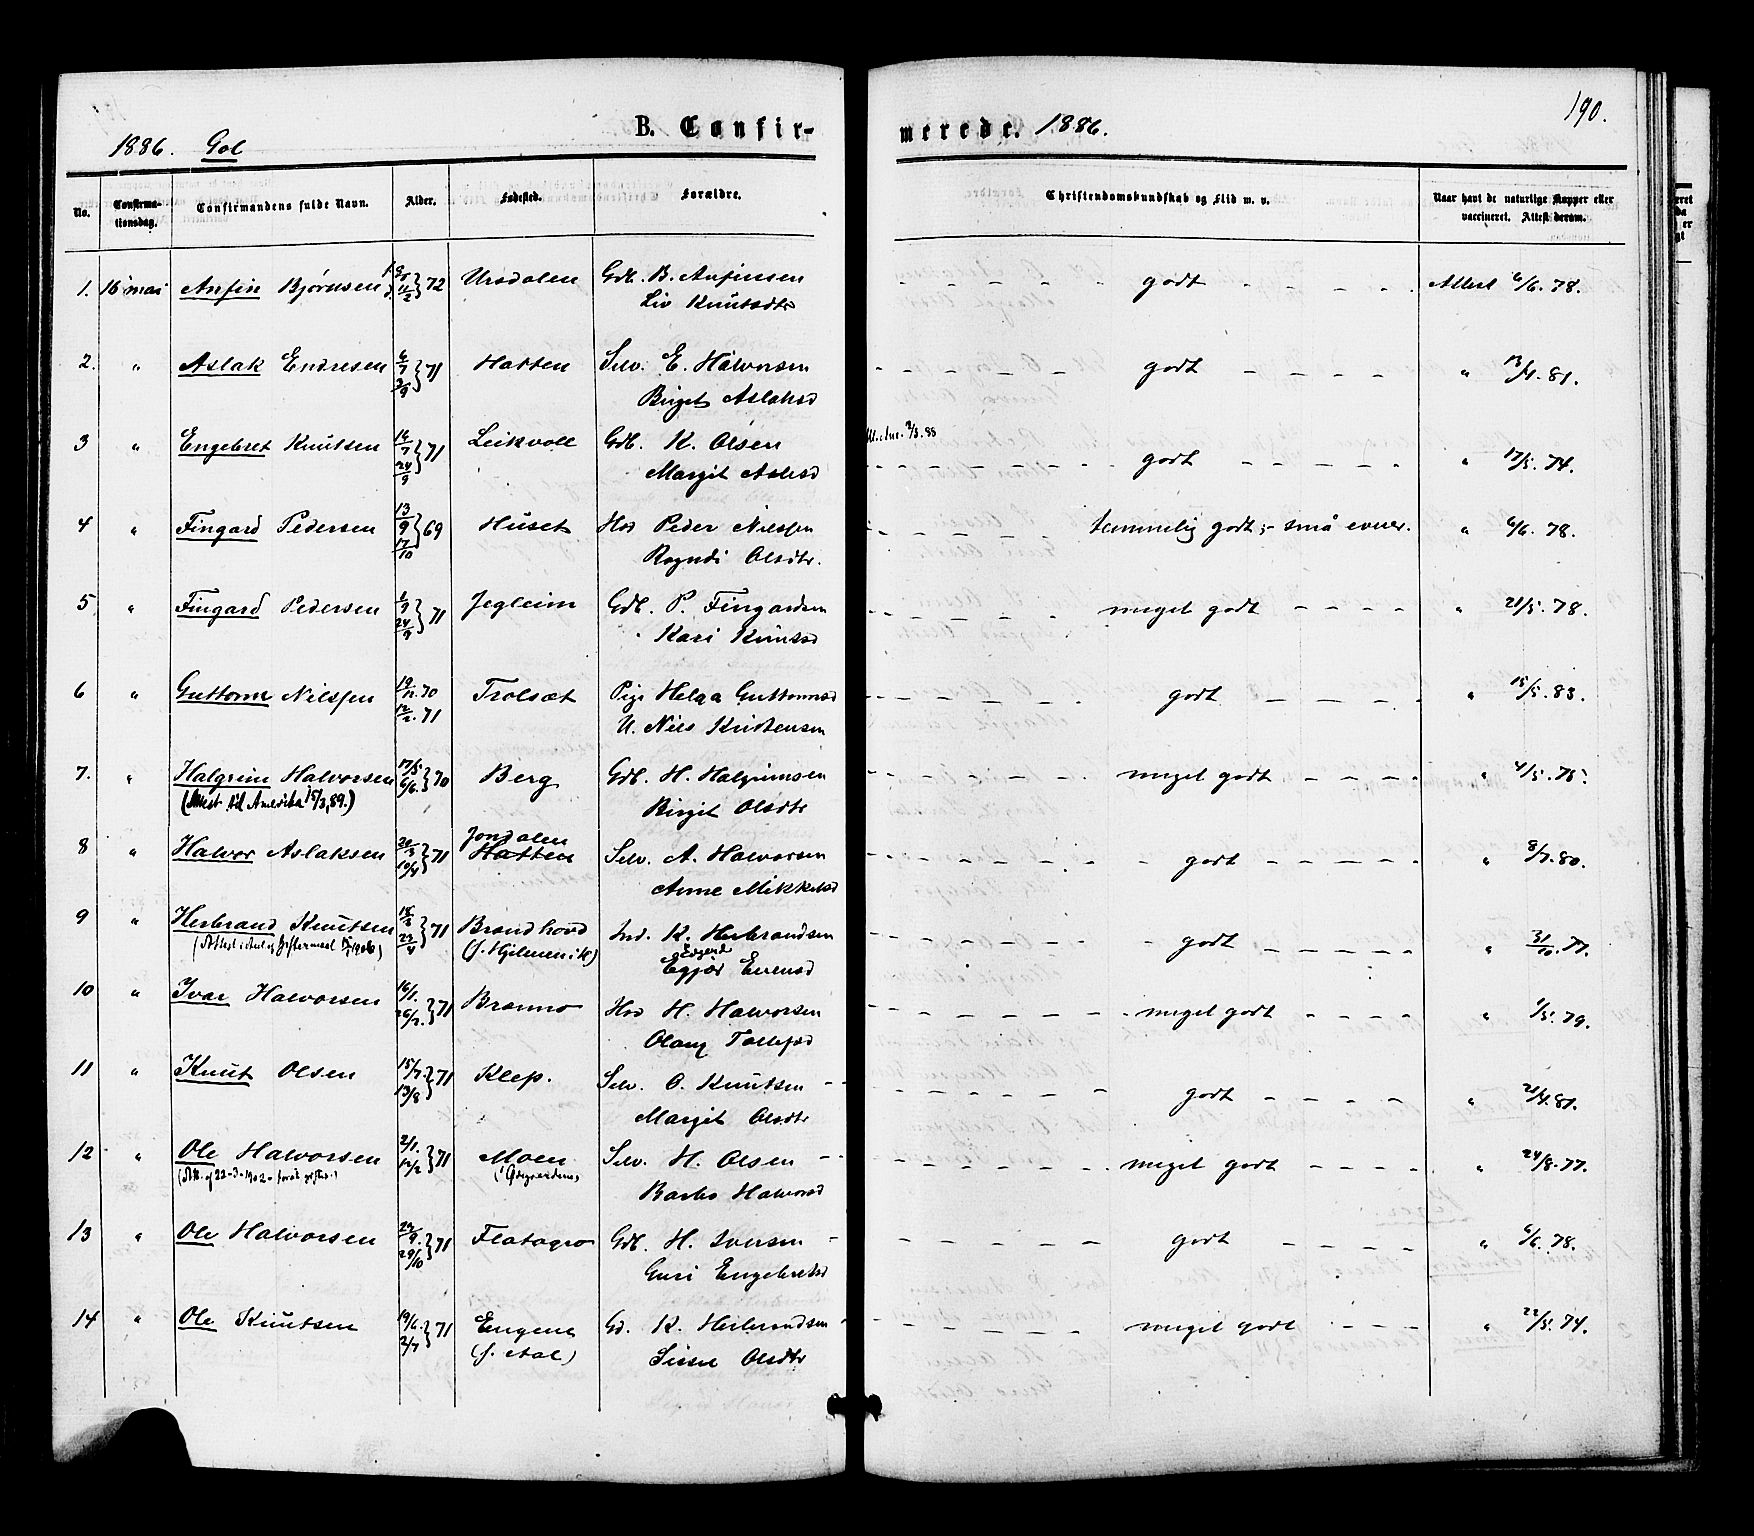 190.
1886. Gol B. Confir- merede. 1886.
No. Confirma-tionsdag. Confirmandens fulde Navn. Alder. Fødested. Forældre. Christendomskundskab og Flid m. v. Naar havt de naturlige Kopper eller vaccineret. Attest derom.
1. 16 mai Anfin Bjørnsen 11/2 } 72 Ursdalen Gdb. B. Anfinsen - - - godt - - - Attest 6/6. 78.
Liv Knutsdtr
2. " Aslak Endresen 6/7 3/9 } 71 Hatten Selv. E. Halvorsen - - - godt - - - " 13/4. 81.
Birget Aslaksd
3 " Engebret Knutsen 16/7 24/9 } 71 Leikvoll Gdb. K. Olsen - - - godt - - - " 17/5. 74.
Margit Aslesd
4 " Fingard Pedersen 13/9 17/10 } 69 Huset Hod Peder Nilssen temmelig godt; - små evner. " 6/6. 78.
Ragndi Olsdtr.
5 " Fingard Pedersen 1/9 24/9 } 71 Jegleim Gdb. P. Fingardsen - - - meget godt - - - " 21/5. 78.
Kari Knutsd
6 " Guttorm Nilssen 19/12. 70 12/2. 71 Trolsæt Pige Helga Guttormsd - - - godt - - - " 15/5. 83.
U. Niels Kristensen
7. " Halgrim Halvorsen 17/5 6/6. } 70 Berg Gdb. H. Halgrimsen - - - meget godt - - - " 4/5. 75.
(Attest til Amerika 15/3, 89.) Birgit Olsdtr
Jondalen
8 " Halvor Aslaksen 20/3 10/4 } 71 Hatten Selv. A. Halvorsen - - - godt - - - " 8/7. 80.
Anne Mikkelsd
9 " Herbrand Knutsen 18/3 23/4 } 71 Brandhovd Ind. K. Herbrandsen - - - godt - - - " 31/10. 77.
(f. Hjelmen i H) Egjør Evensd
10 " Ivar Halvorsen 16/1. 26/2. } 71 Brenno Hod H. Halvorsen - - - meget godt - - - " 1/5. 79.
Olaug Tollefsd
11 " Knut Olsen 15/7. 13/8 } 71 Klep. Selv. O. Knutsen - - - godt - - - " 21/4. 81.
Margit Olsdtr
12 " Ole Halvorsen 2/1. 12/2 } 71 Moen Selv. H. Olsen - - - meget godt - - - " 24/8. 77.
(Att. af 22-3-1902 - forat giftes.) Barbo Halvorsd
13 " Ole Halvorsen 24/9. 29/10 } 71 Flatagro Gdb. H. Iversen - - - godt - - - " 6/6. 78.
Guri Engebretsd
14 " Ole Knutsen 19/6. 2/7 } 71 Engene Gd. K. Herbrandsen - - - meget godt - - - " 22/5. 74.
(f. Aal) Sissel Olsdtr